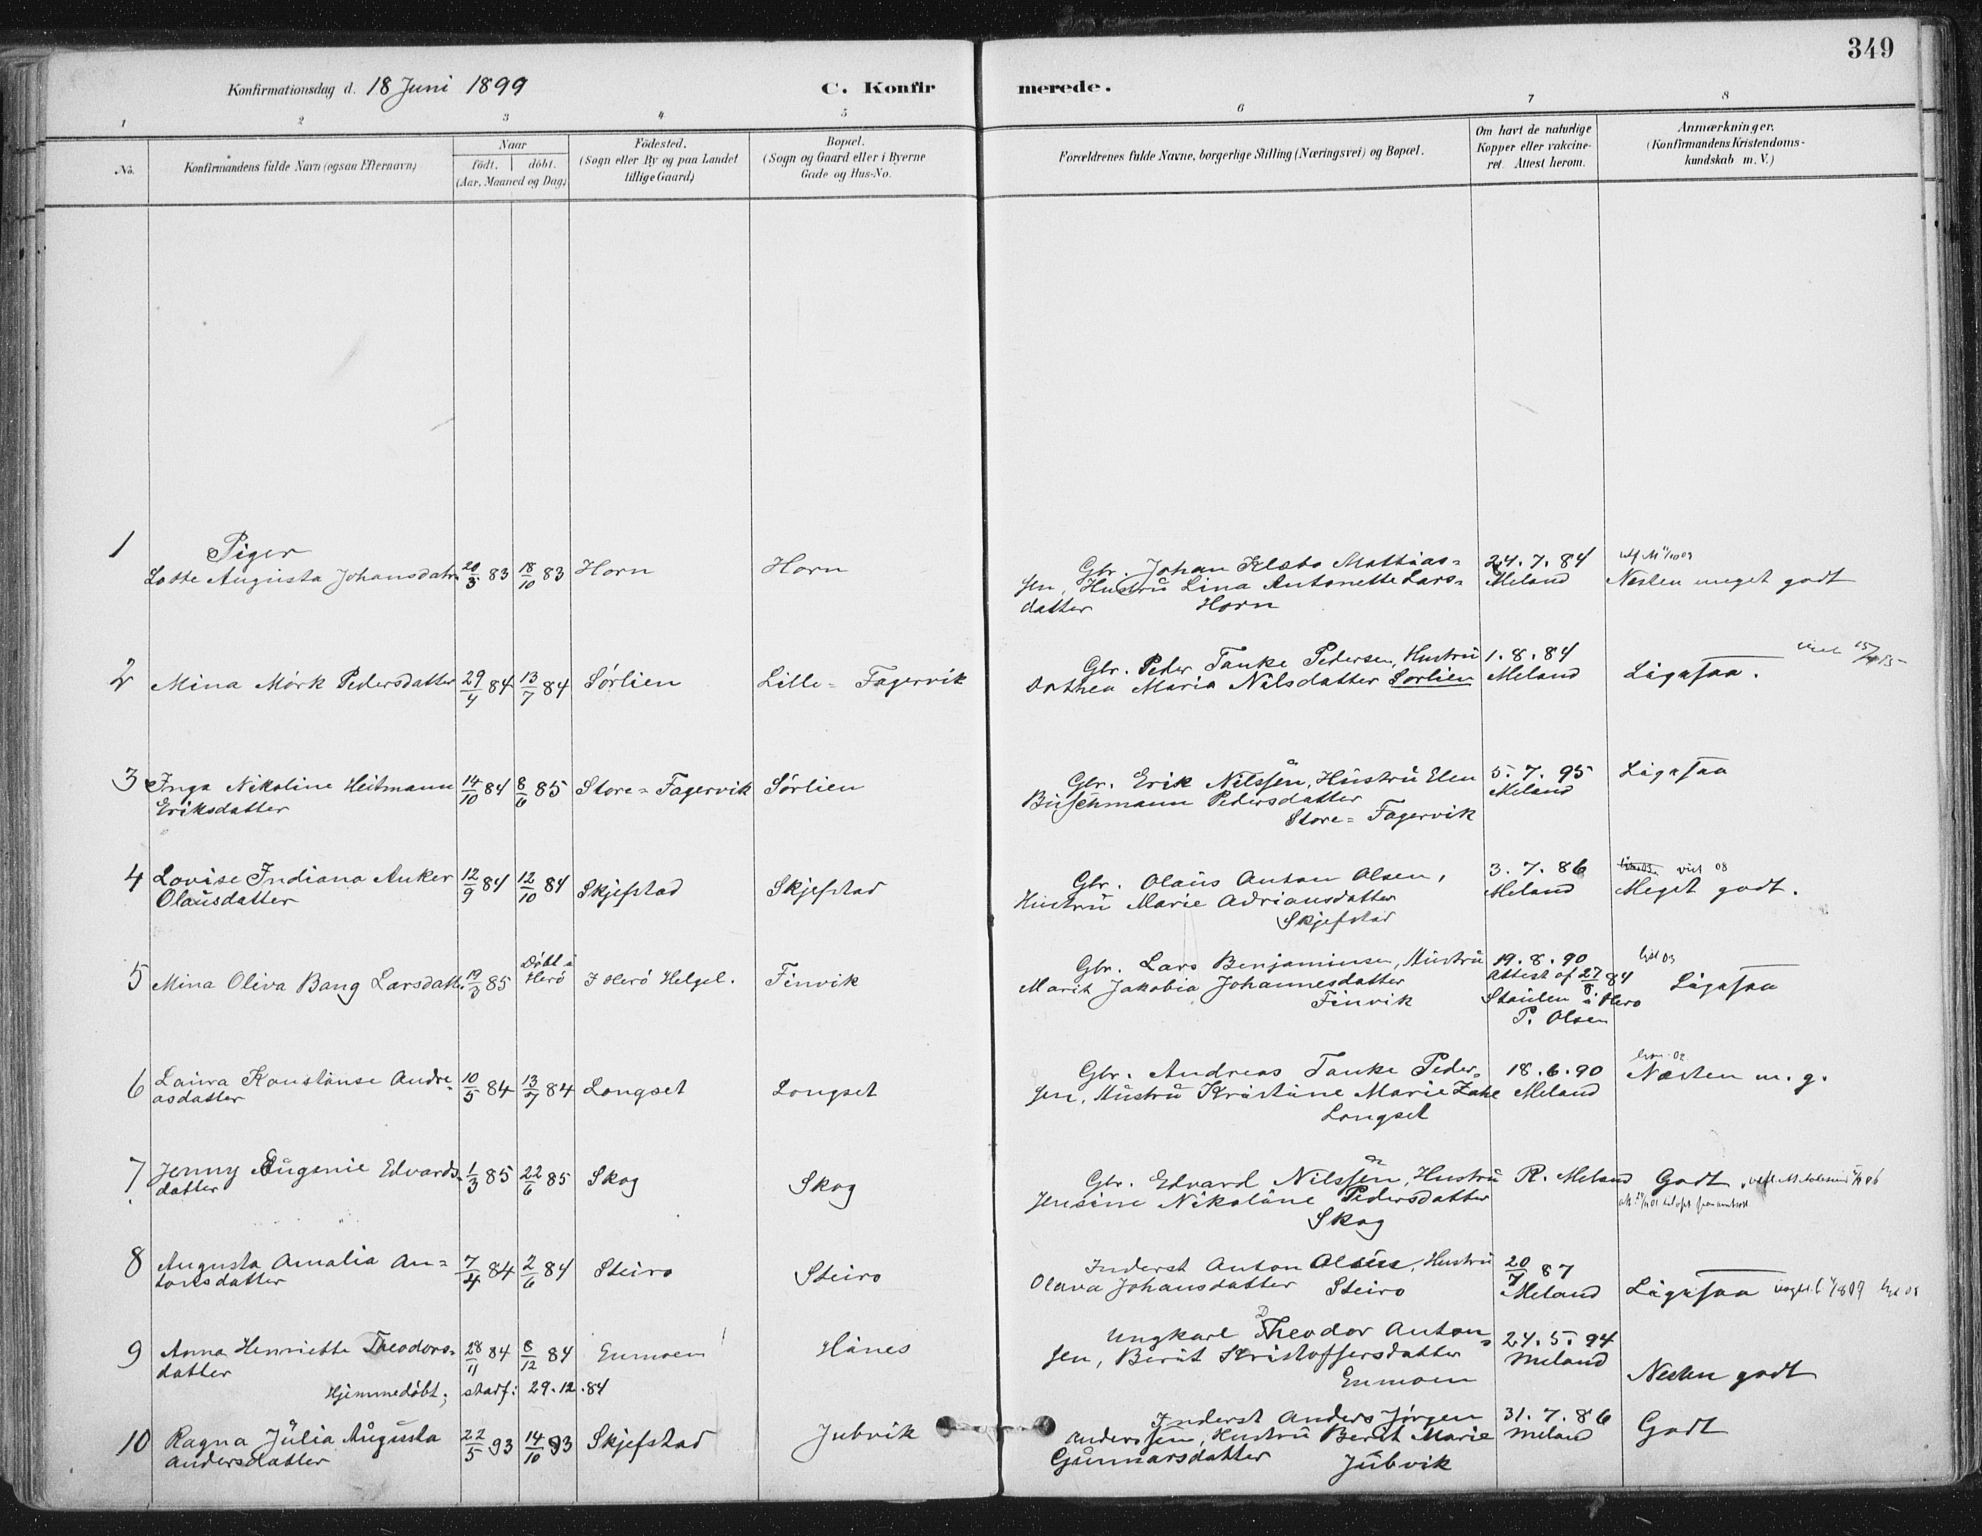 349
Konfirmationsdag d. 18 Juni 1899 C. Konfirmerede.
1 2 3 4 5 6 7 8
No. Konfirmandens fulde Navn (ogsaa Efternavn)
Naar født. døbt. (Aar, Maaned og Dag)
Födested. (Sogn eller By og paa Landet tillige Gaard)
Bopæl. (Sogn og Gaard eller i Byerne Gade og Hus-No.
Forældrenes fulde Navne, borgerlige Stilling (Næringsvei) og Bopæl.
Om havt de naturlige Kopper eller vakcineret. Attest herom.
Anmærkninger. (Konfirmandens Kristendomskundskab m. V.)
Piger
1 Lotte Augusta Johansdatr 20/3 83 18/10 83 Horn Horn
Gbr. Johan Klæbo Mathias-
sen, Hustru Lina Antonette Lars-
datter Horn
24.7.84 Meland
Næsten meget godt
2 Mina Mörk Pedersdatter 29/4 84 13/7 84 Sørlien Lille-Fagervik
Gbr. Peder Tanke Pedersen, Hustru
Dorthea Maria Nilsdatter Sørlien
1.8.84 Meland
Ligesaa.
3 Inga Nikoline Heitmann
Eriksdatter 14/10 84 8/6 85 Store-Fagervik Sørlien
Gbr. Erik Nilssen, Hustru Elen
Buschmann Pedersdatter
Store-Fagervik
5.7.95 Meland
Ligesaa
4 Lovise Indiana Anker
Olausdatter 12/9 84 12/10 84 Skjefstad Skjefstad
Gbr. Olaus Anton Olsen,
Hustru Marie Adriansdatter
Skjefstad
3.7.86 Meland
viet 08
Meget godt.
5 Mina Oliva Bang Larsdatt. 19/3 85 Döbt i Herö I Herö Helgel. Finvik
Gbr. Lars Benjaminsen, Hustru
Marit Jakobia Johannesdatter
Finvik
19.8.90
Attest af 27/8 84
Staulen i Herö
P. Olsen
Ligesaa
6 Laura Konstanse Andre-
asdatter 10/5 84 13/7 84 Longset Longset
Gbr. Andreas Tanke Peder-
sen, Hustru Kristine Marie Zahl
Longset
18.6.90 Meland
Næsten m. g.
7 Jenny Eugenie Edvards-
datter 1/3 85 22/6 85 Skog Skog
Gbr. Edvard Nilssen, Hustru
Jensine Nikoline Pedersdatter
Skog
R. Meland
Godt
8 Augusta Amalia An-
tonsdatter 7/4 84 2/6 84 Steiro Steiro
Inderst Anton Olsen, Hustru
Olava Johansdatter Steiro
20/7 87 Meland
Ligesaa
9 Anna Henriette Theodors-
datter 28/11 84 8/12 84 Enmoen Hånes
Hjemmedöbt; stadf: 29.12.84
Ungkarl Theodor Anton-
sen, Berit Kristoffersdatter
Enmoen
24.5.94 Meland
Næsten godt
10 Ragna Julia Augusta
Andersdatter 22/5 93 14/10 93 Skjefstad Jubvik
Inderst Anders Jörgen
Anderssen, Hustru Berit Marie
Gunnarsdatter Jubvik
31.7.86 Meland
Godt